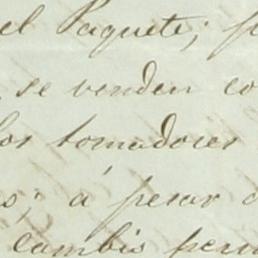 el Paquete; p
se venden co
los tomadores
s; á pesar d
cambio per